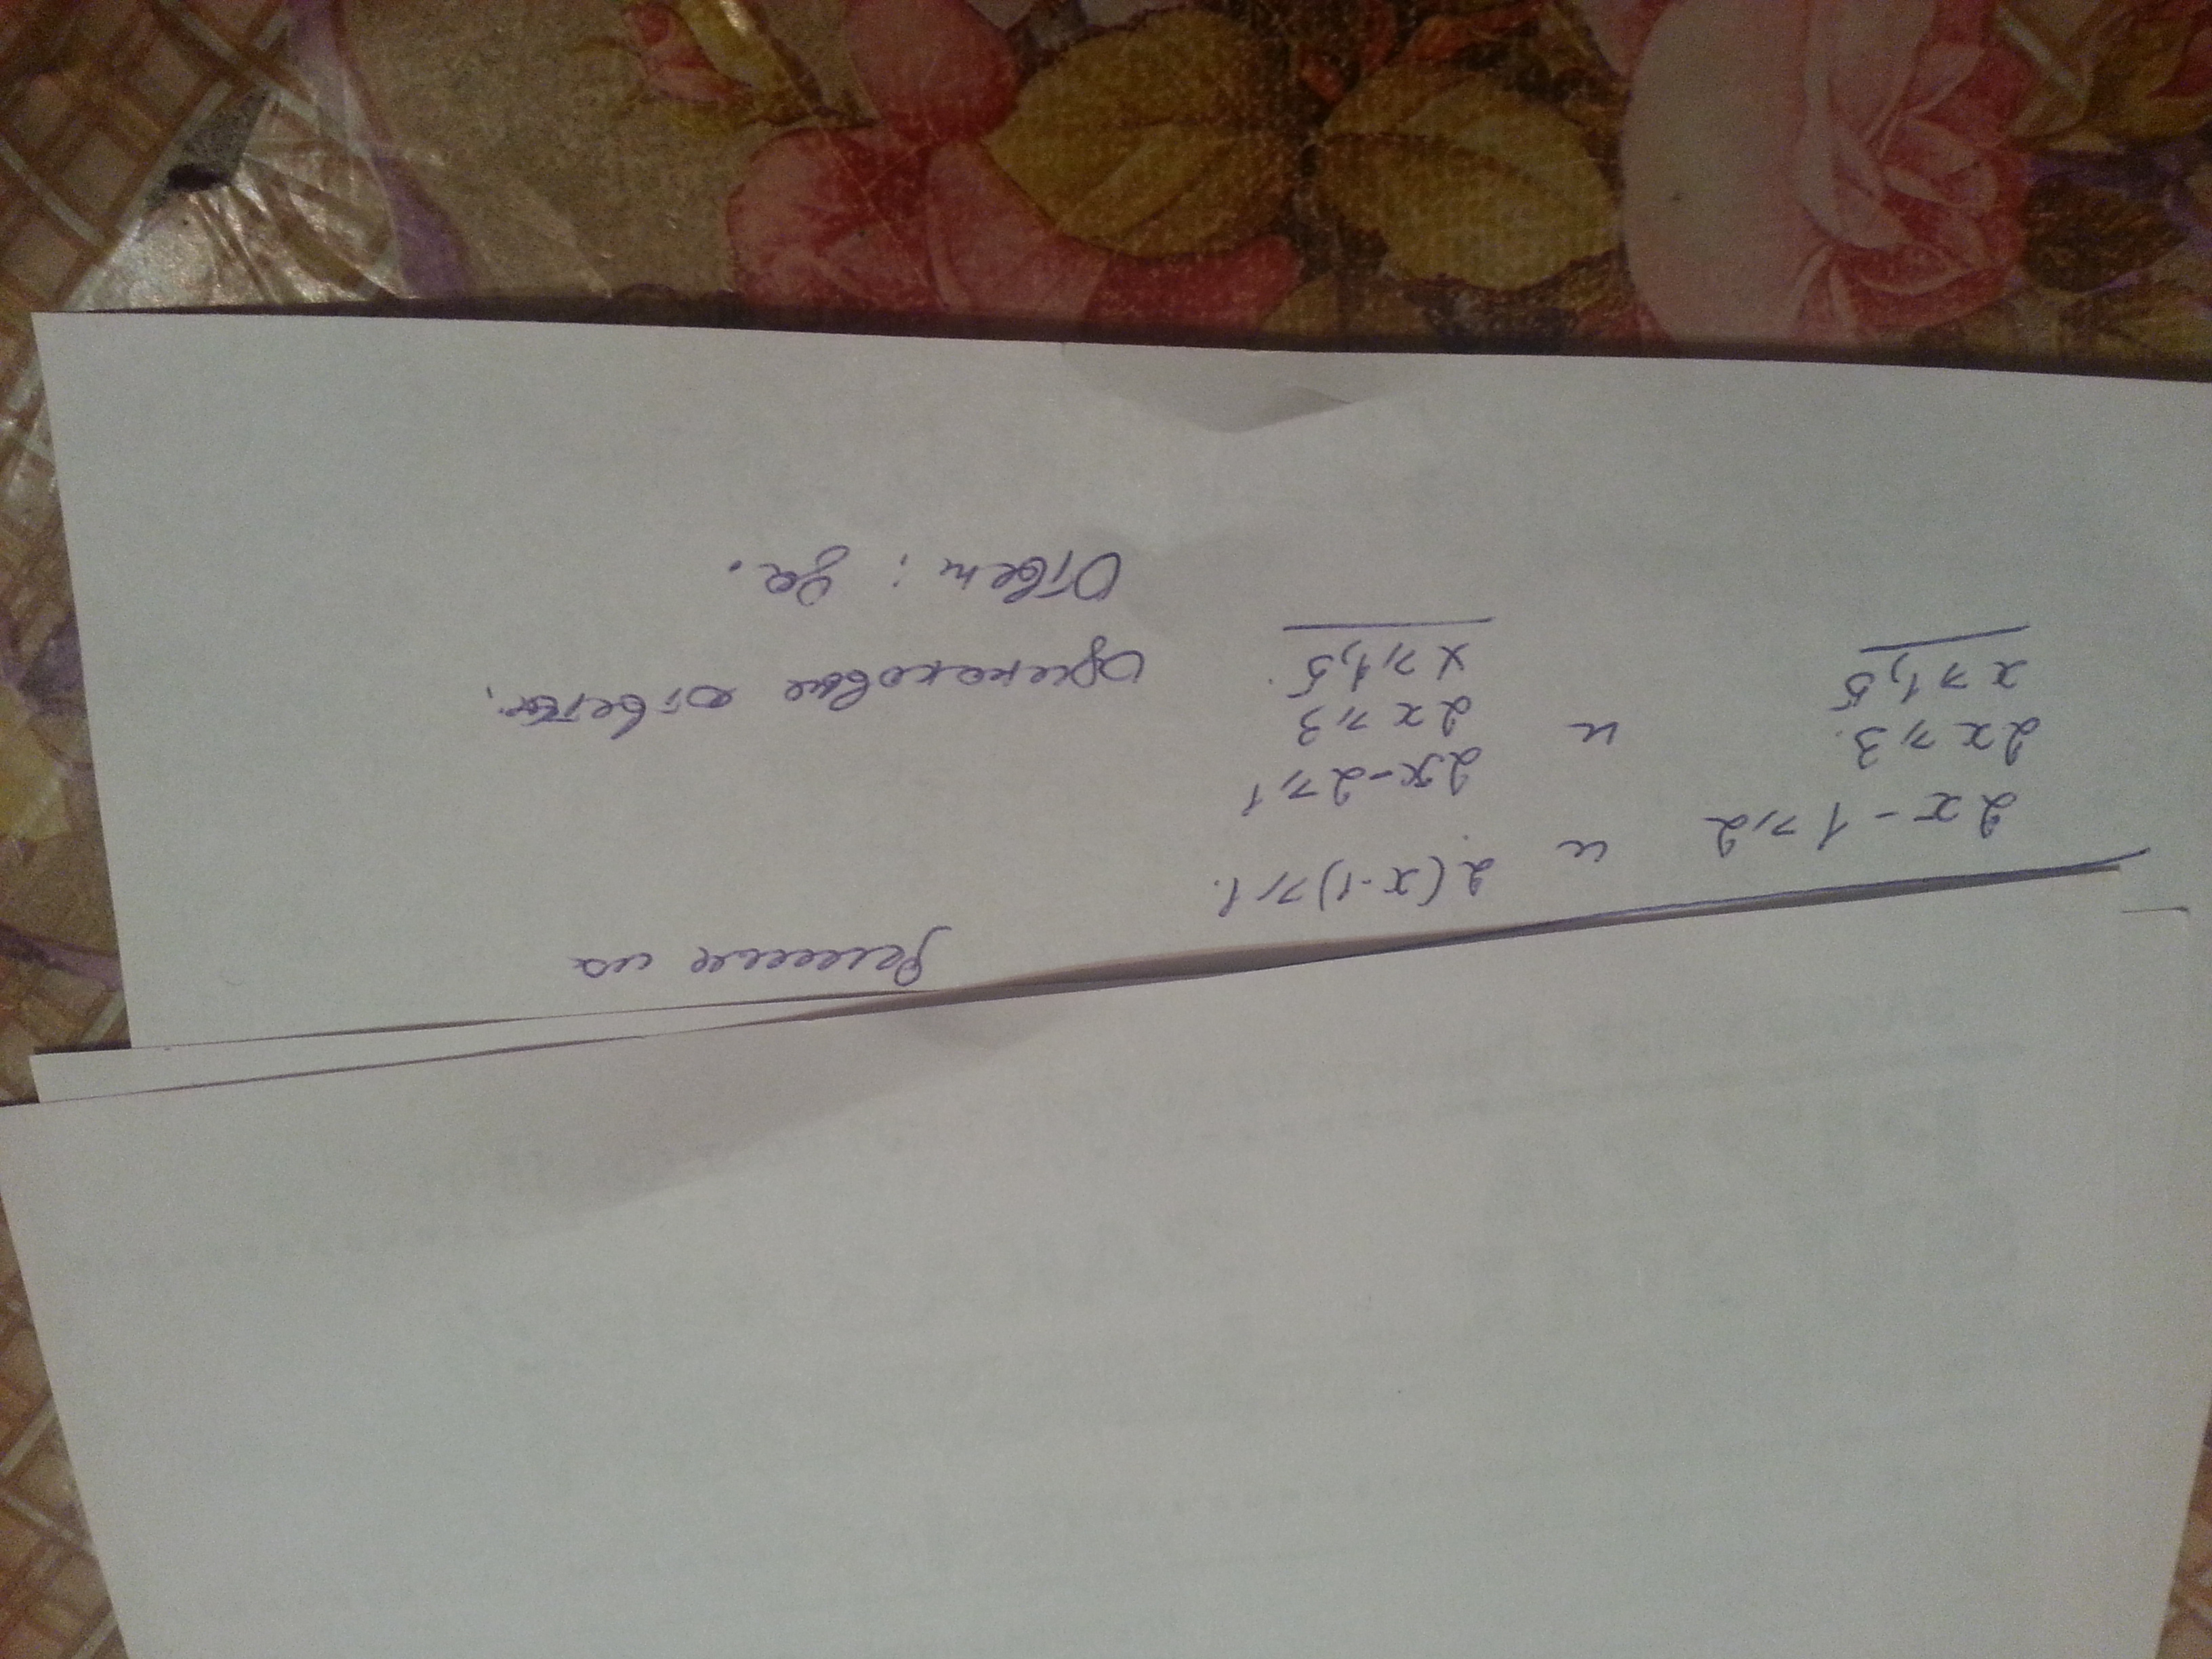 Решение
2x - 1 ⩾ 2 и 2(x-1) ⩾ 1.
2x - 2 ⩾ 1
2x ⩾ 3. и 2x ⩾ 3
x ⩾ 1,5 x ⩾ 1,5. Одинаковые ответы.
Ответ: да.